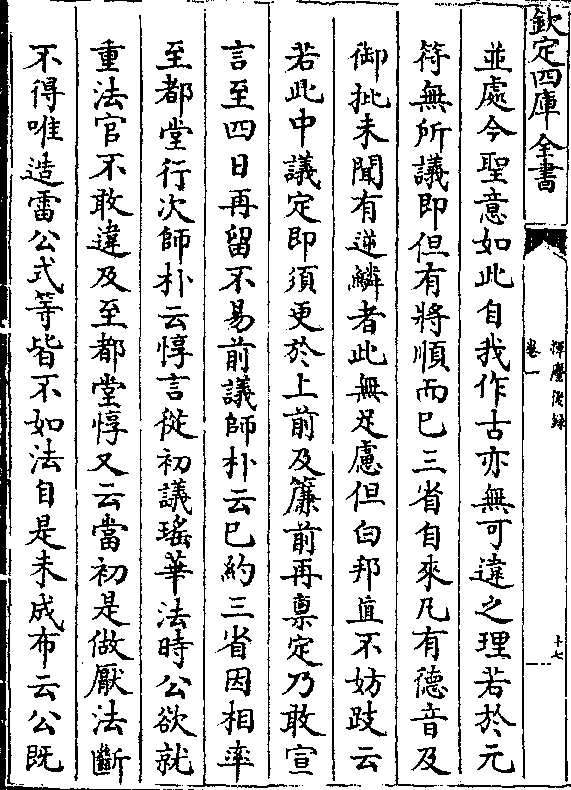 欽定四庫全書
揮麈後錄
卷一
十七
並處今聖意如此自我作古亦無可違之理若於元
符無所議即但有將順而已三省自來凡有德音及
御批未聞有逆鱗者此無足慮但白邦直不妨歧云
若此中議定即須更於上前及簾前再稟定乃敢宣
言至四日再留不易前議師朴云已約三省因相率
至都堂行次師朴云惇言從初議瑤華法時公欲就
重法官不敢違及至都堂惇又云當初是做厭法斷
不得唯造雷公式等皆不如法自是未成布云公既